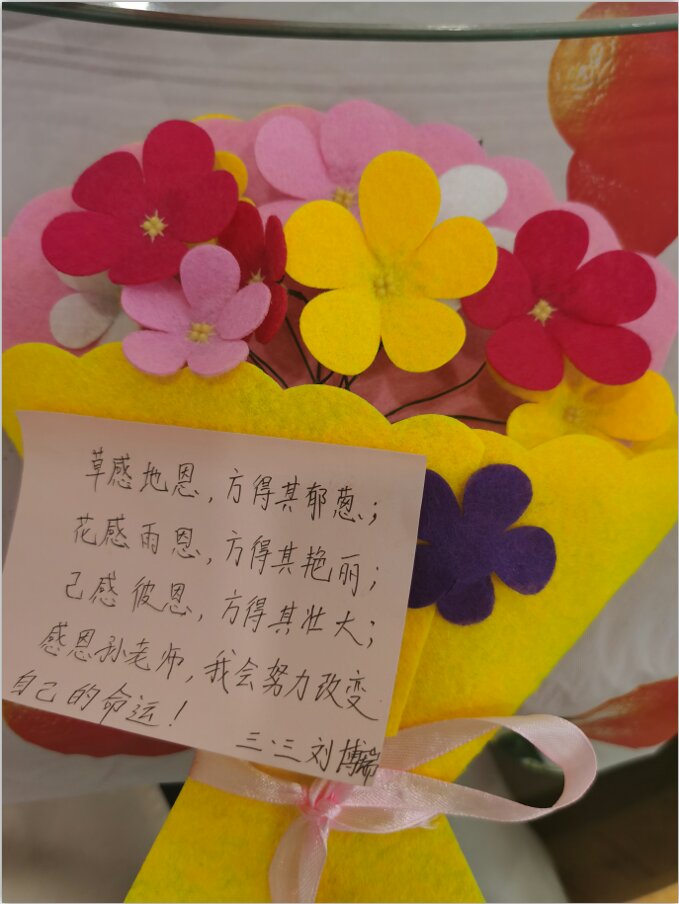 草感地恩，方得其郁葱；
花感雨恩，方得其艳丽；
己感彼恩，方得其壮大；
感恩孙老师，我会努力改变
自己的命运！
三.三刘博瑞